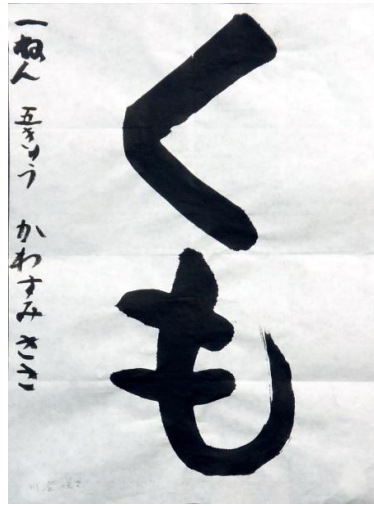 くも
一ねん 五きゅう かわすみきき